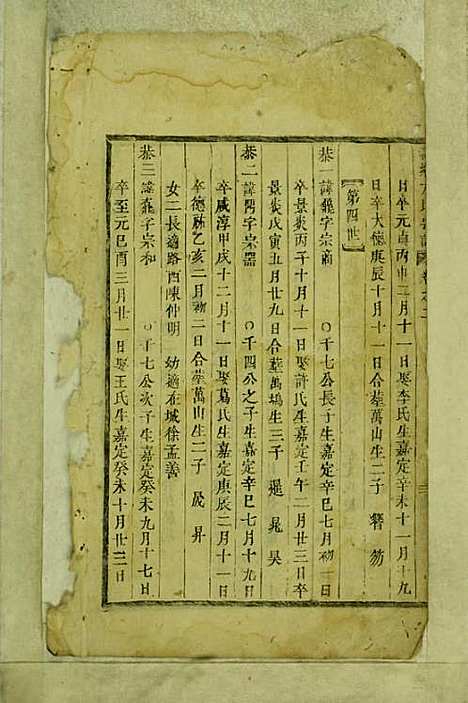 日卒元貞丙申二月十一日娶李氏生嘉定辛未十一月十九
日卒大德庚辰十月十一日合葬萬山生二子 簪 笏
第四世
恭一諱 字宗 〇千七公長子生嘉定辛巳七月初一日
卒景炎丙子十月十一日娶許氏生嘉定壬午二月廿三日卒
景炎戊寅五月廿九日合葬萬塢生三子 暹 晁 昊
恭二諱 字宗器 〇千四公之子生嘉定辛巳七月十九日
卒咸淳甲戌十二月十一日娶葛氏生嘉定庚辰二月十一日
卒德祐乙亥二月初二日合葬萬山生二子 晟 昇
女二長適路西陳仲明 幼適在城徐孟善
恭三諱 字宗和 〇千七公次子生嘉定癸未九月十七日
卒至元己酉三月廿一日娶王氏生嘉定癸未十月廿二日